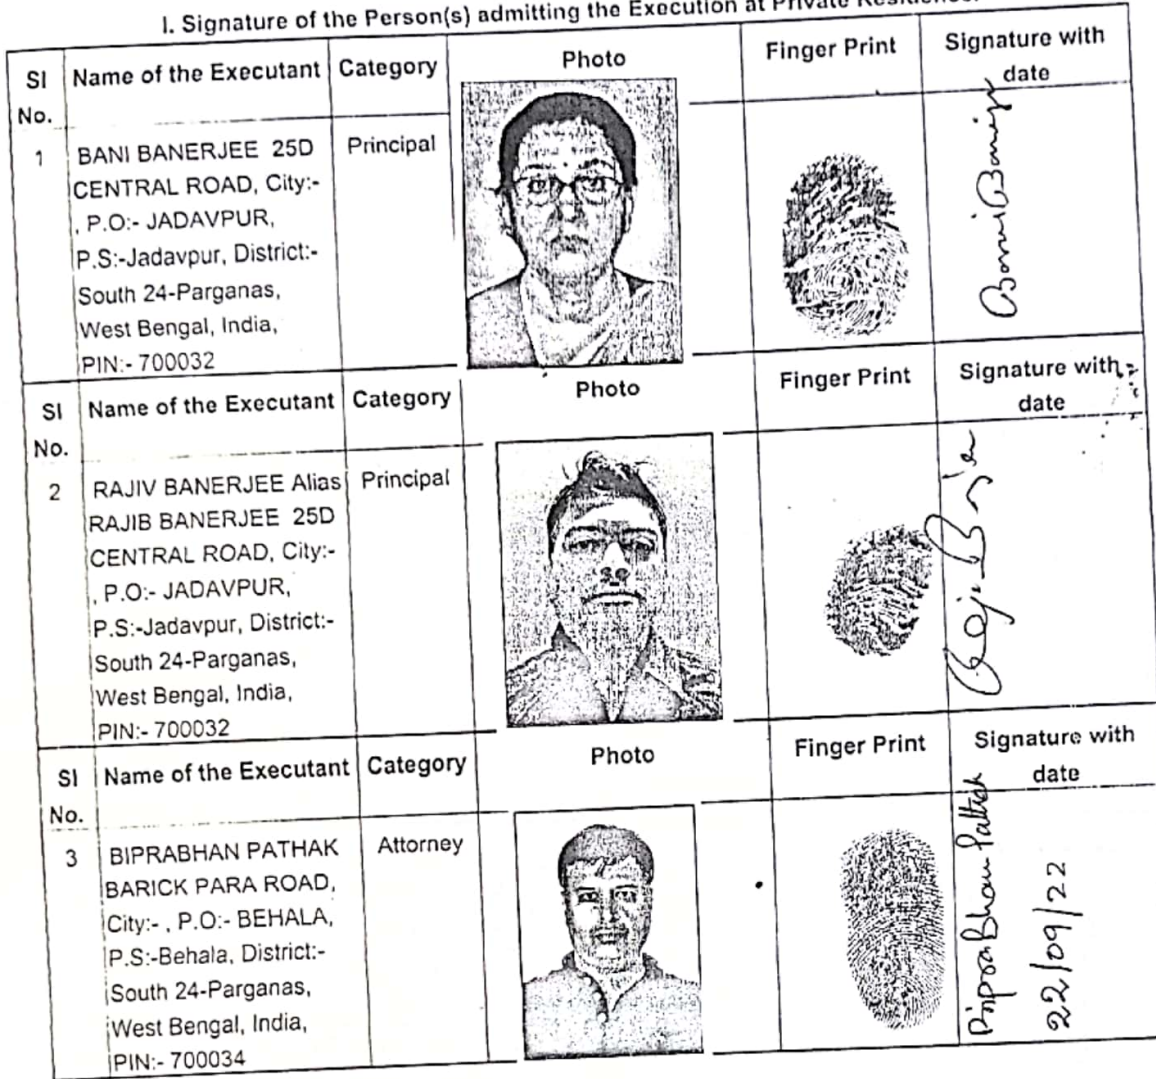 I. Signature of the Person(s) admitting the Execution at Private Residence.
Sl No. Name of the Executant Category Photo Finger Print Signature with date
1 BANI BANERJEE 25D Principal
CENTRAL ROAD, City:-
, P.O:- JADAVPUR,
P.S:-Jadavpur, District:-
South 24-Parganas,
West Bengal, India,
PIN:- 700032
Bani Banerjee
Sl No. Name of the Executant Category Photo Finger Print Signature with date
2 RAJIV BANERJEE Alias Principal
RAJIB BANERJEE 25D
CENTRAL ROAD, City:-
, P.O:- JADAVPUR,
P.S:-Jadavpur, District:-
South 24-Parganas,
West Bengal, India,
PIN:- 700032
Sl No. Name of the Executant Category Photo Finger Print Signature with date
3 BIPRABHAN PATHAK Attorney
BARICK PARA ROAD,
City:- , P.O:- BEHALA,
P.S:-Behala, District:-
South 24-Parganas,
West Bengal, India,
PIN:- 700034
BipraBhan Pathak
22/09/22